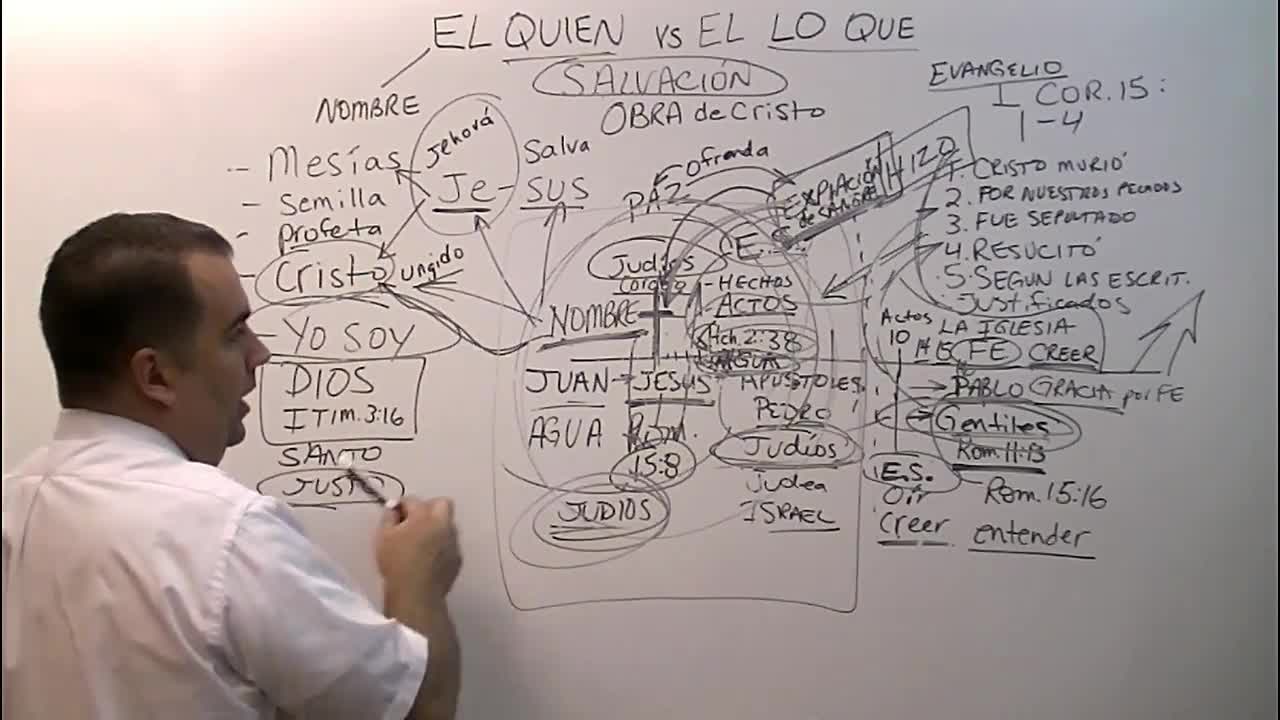 EL QUIEN vs EL LO QUE
SALVACIÓN
OBRA de Cristo
NOMBRE
- Mesías
- Semilla
- profeta
- Cristo ungido
- YO SOY
DIOS
I TIM. 3:16
SANTO
JUSTO
Jehová
Je - SUS
Salva
Ofrenda
PAZ
EXPIACIÓN
de SANGRE
HIZO
E.S.
Judíos
NOMBRE
JUAN - JESUS
AGUA
ROM.
15:8
JUDIOS
- HECHOS
ACTOS
Hch. 2:38
APOSTOLES
PEDRO
Judíos
Judea
ISRAEL
EVANGELIO
I COR. 15:
1-4
1. CRISTO MURIÓ
2. POR NUESTROS PECADOS
3. FUE SEPULTADO
4. RESUCITÓ
5. SEGUN LAS ESCRIT.
Justificados
Actos
10
LA IGLESIA
FE CREER
PABLO GRACIA por FE
Gentiles
Rom. 11:13
Rom. 15:16
E.S.
Oir
creer
entender